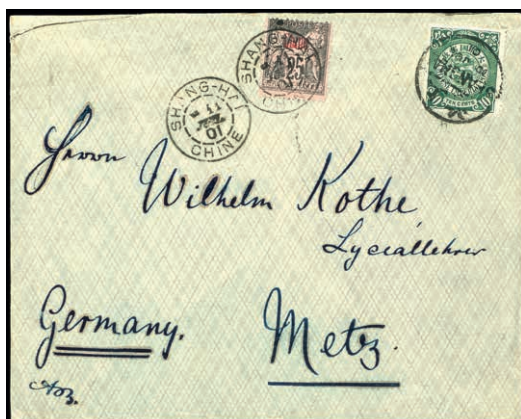 SHANG-HAI
CHINE
25
SHANG-HAI
11
01
CHINE
10
Herrn
Wilhelm Kothe
Lyciallehrer
Germany.
Metz.